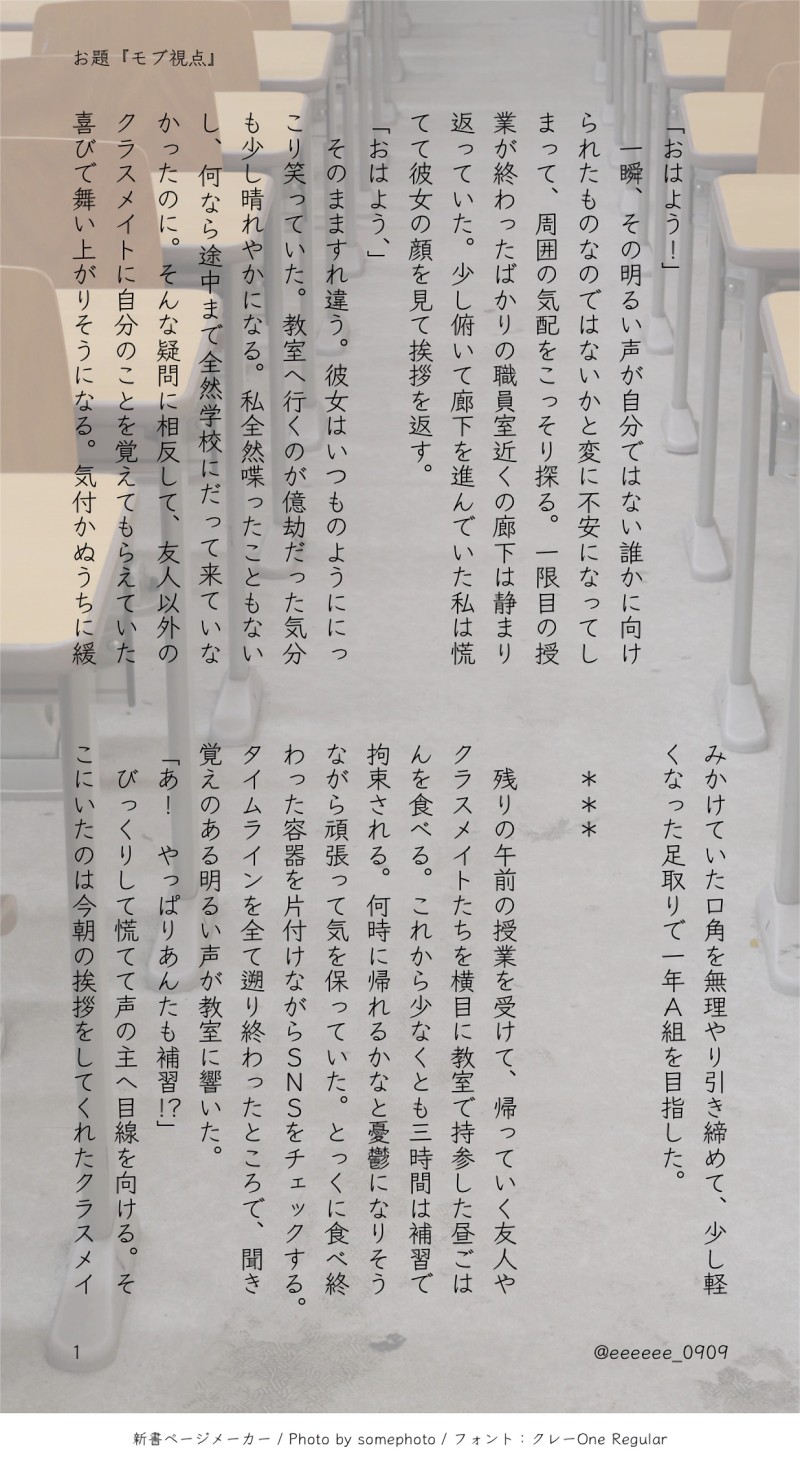 お題『モブ視点』
「おはよう！」
　一瞬、その明るい声が自分ではない誰かに向け
られたものなのではないかと変に不安になってし
まって、周囲の気配をこっそり探る。一限目の授
業が終わったばかりの職員室近くの廊下は静まり
返っていた。少し俯いて廊下を進んでいた私は慌
てて彼女の顔を見て挨拶を返す。
「おはよう、」
　そのまますれ違う。彼女はいつものようににっ
こり笑っていた。教室へ行くのが億劫だった気分
も少し晴れやかになる。私全然喋ったこともない
し、何なら途中まで全然学校にだって来ていな
かったのに。そんな疑問に相反して、友人以外の
クラスメイトに自分のことを覚えてもらえていた
喜びで舞い上がりそうになる。気付かぬうちに緩
みかけていた口角を無理やり引き締めて、少し軽
くなった足取りで一年Ａ組を目指した。
＊＊＊
　残りの午前の授業を受けて、帰っていく友人や
クラスメイトたちを横目に教室で持参した昼ごは
んを食べる。これから少なくとも三時間は補習で
拘束される。何時に帰れるかなと憂鬱になりそう
ながら頑張って気を保っていた。とっくに食べ終
わった容器を片付けながらＳＮＳをチェックする。
タイムラインを全て遡り終わったところで、聞き
覚えのある明るい声が教室に響いた。
「あ！　やっぱりあんたも補習!?」
　びっくりして慌てて声の主へ目線を向ける。そ
こにいたのは今朝の挨拶をしてくれたクラスメイ
1
@eeeeee_0909
新書ページメーカー / Photo by somephoto / フォント：クレーOne Regular